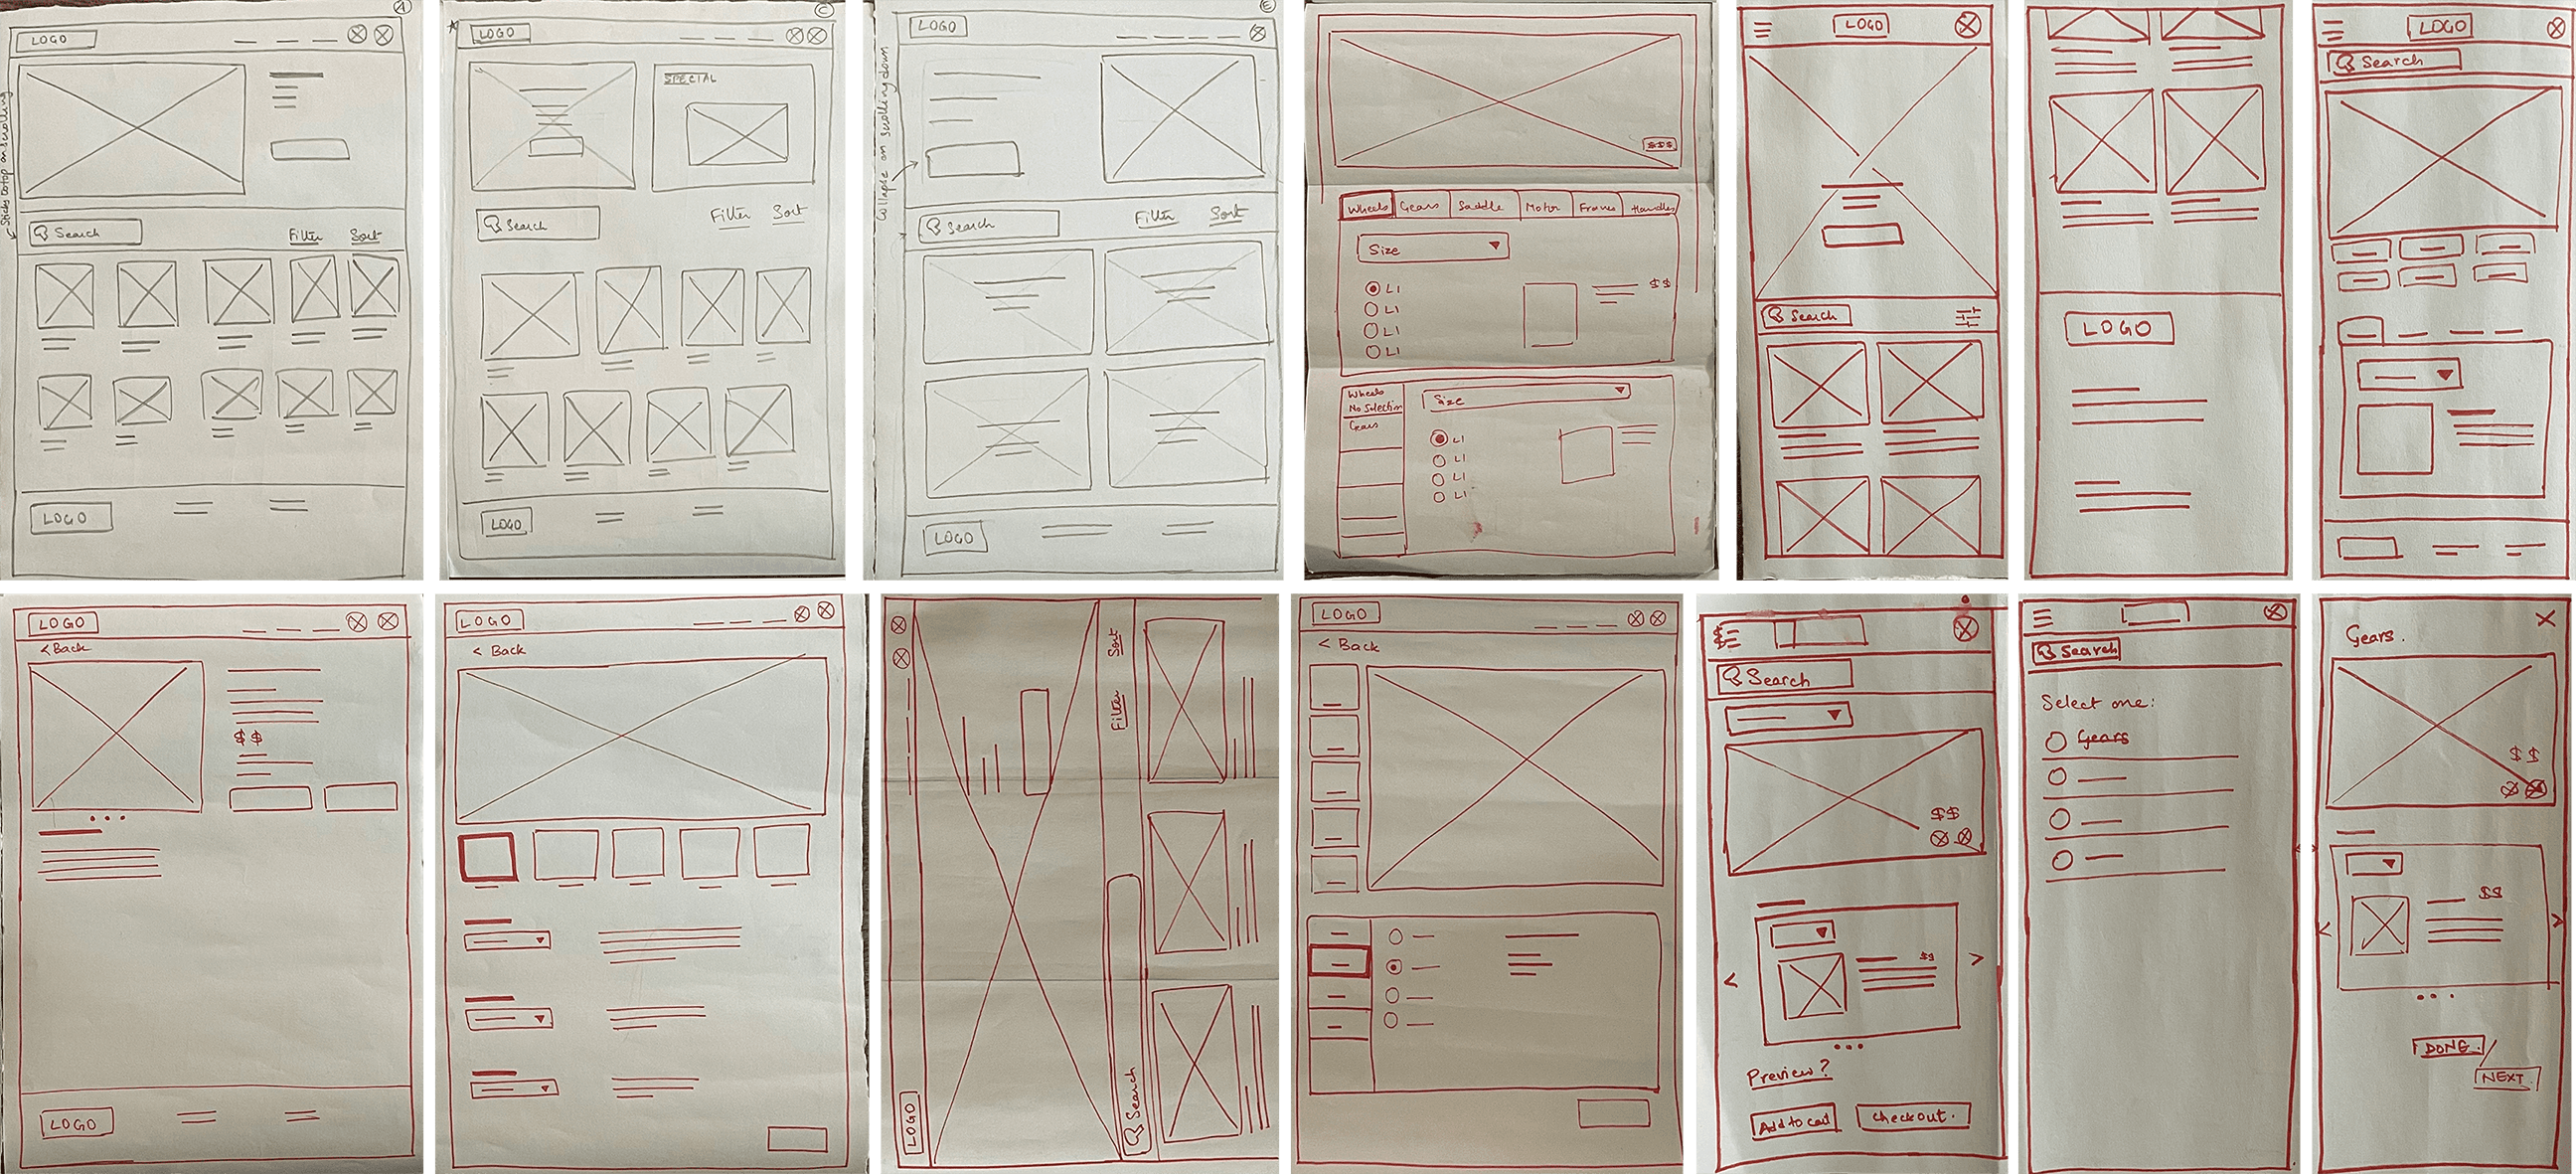 A
LOGO
Sticks to top on scrolling
Search
Filter
Sort
LOGO
C
LOGO
SPECIAL
Filter
Sort
Search
LOGO
E
LOGO
Collapse on scrolling down
Search
Filter
Sort
LOGO
$$$
Wheels
Gears
Saddle
Motor
Frames
Handles
Size
$$
L1
L1
L1
L1
Wheels
No Selection
Gears
Size
L1
L1
L1
L1
LOGO
Search
LOGO
LOGO
Search
LOGO
< Back
$$
LOGO
LOGO
< Back
Sort
Filter
Search
LOGO
LOGO
< Back
Search
$$
$$
< >
Preview?
Add to cart
Checkout.
Search
Select one:
Gears
Gears.
X
$$
$$
< >
DONE
NEXT